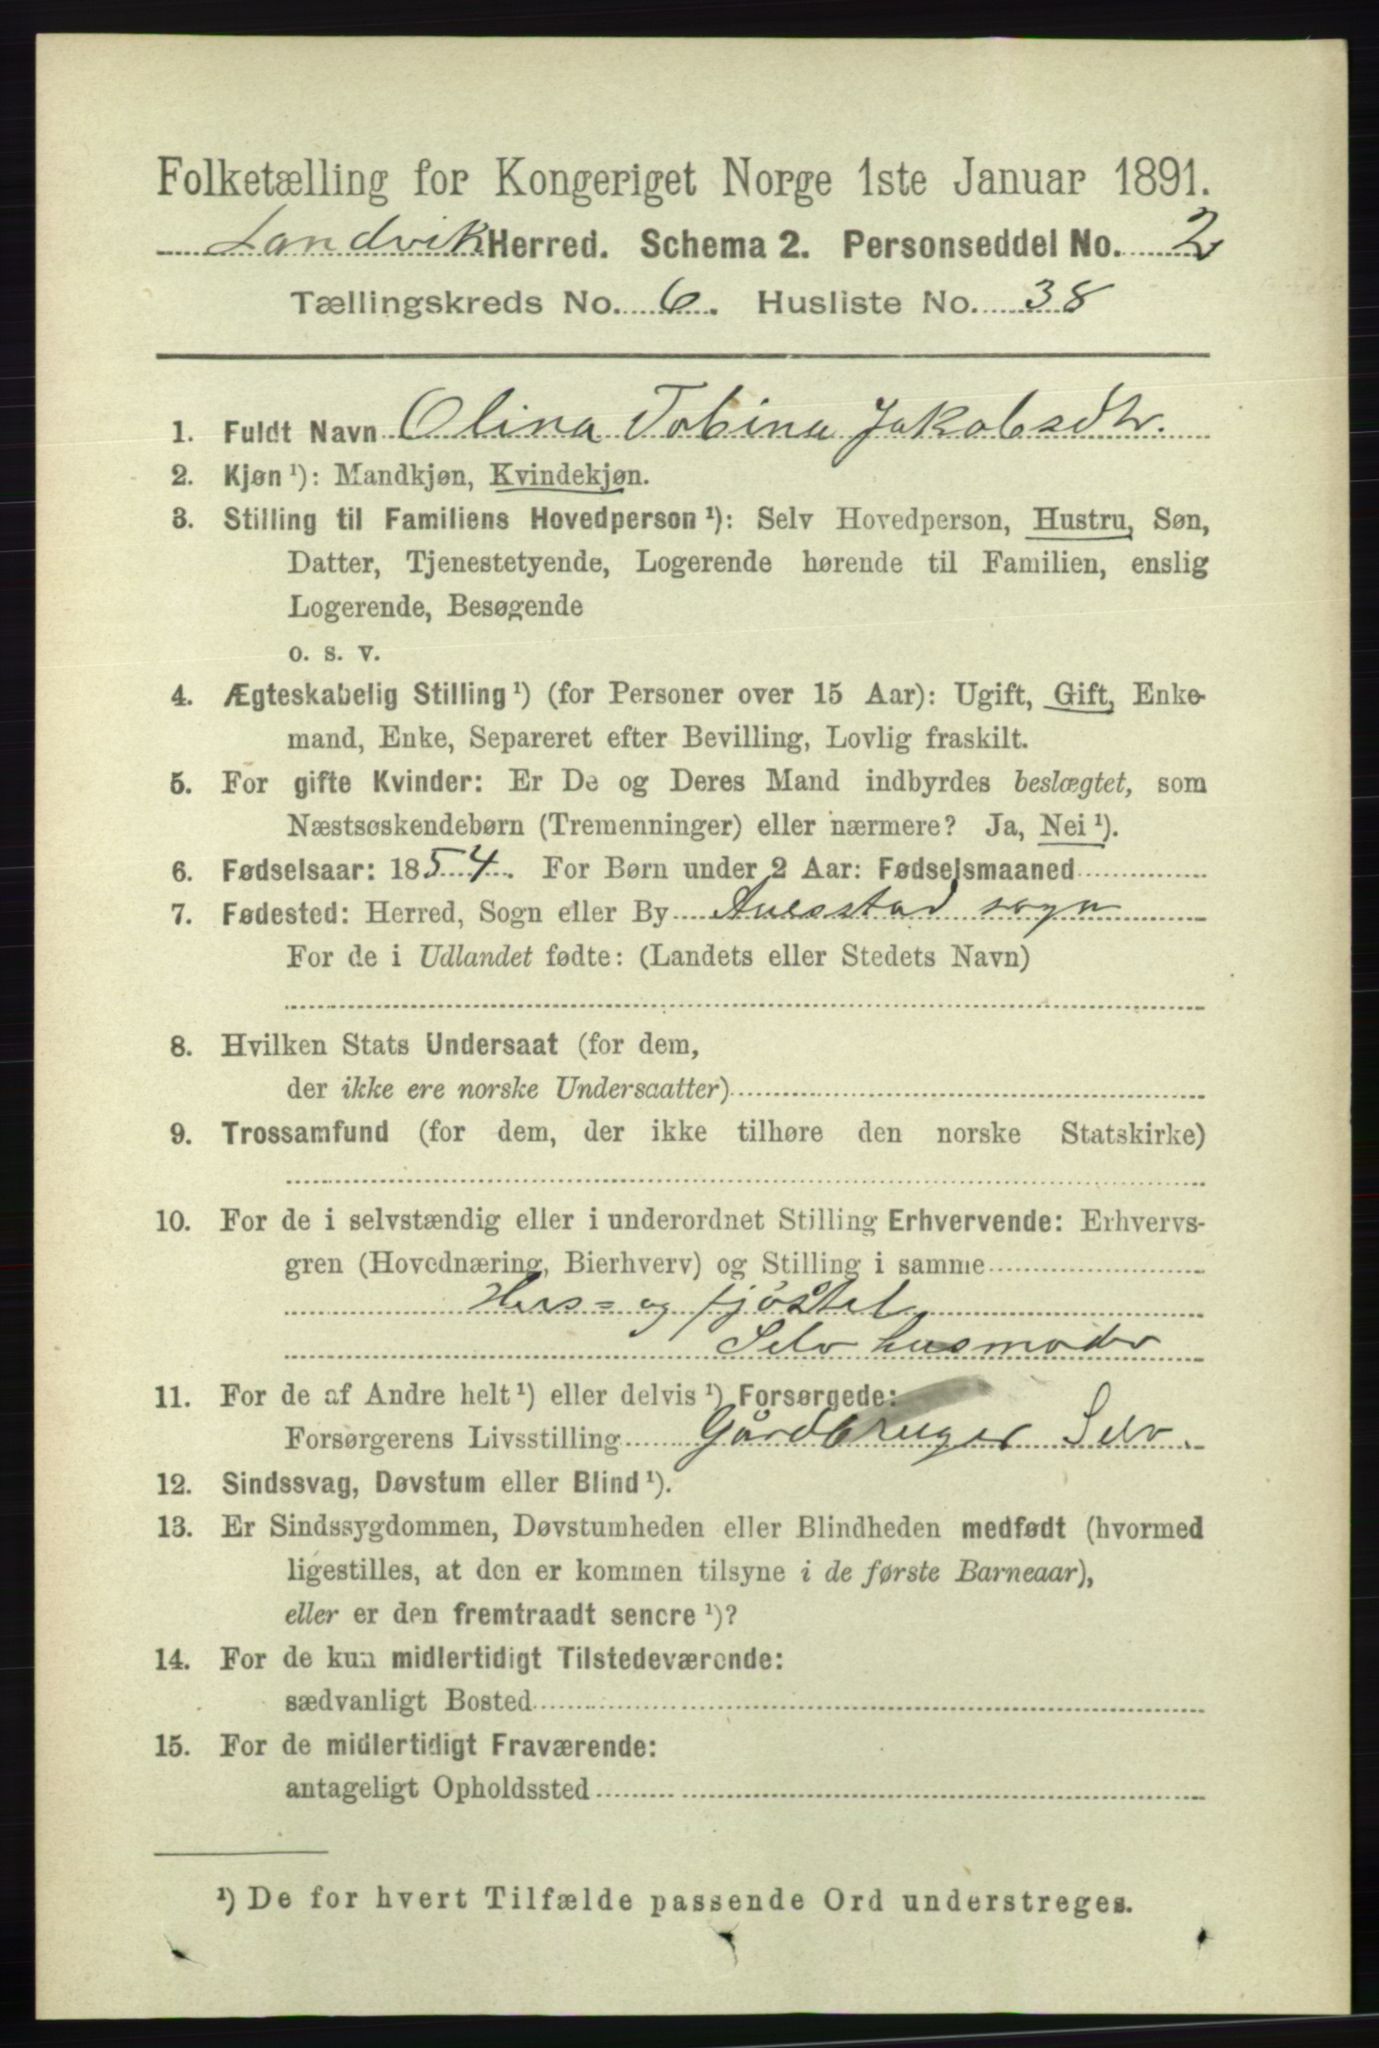 Folketælling for Kongeriget Norge 1ste Januar 1891.
Landvik Herred. Schema 2. Personseddel No. 2
Tællingskreds No. 6. Husliste No. 38
1. Fuldt Navn Olina Tobina Jakobsdtr.
2. Kjøn ¹): Mandkjøn, Kvindekjøn.
3. Stilling til Familiens Hovedperson ¹): Selv Hovedperson, Hustru, Søn,
Datter, Tjenestetyende, Logerende hørende til Familien, enslig
Logerende, Besøgende
o. s. v.
4. Ægteskabelig Stilling ¹) (for Personer over 15 Aar): Ugift, Gift, Enke-
mand, Enke, Separeret efter Bevilling, Lovlig fraskilt.
5. For gifte Kvinder: Er De og Deres Mand indbyrdes beslægtet, som
Næstsøskendebørn (Tremenninger) eller nærmere? Ja, Nei ¹).
6. Fødselsaar: 1854. For Børn under 2 Aar: Fødselsmaaned
7. Fødested: Herred, Sogn eller By sogn
For de i Udlandet fødte: (Landets eller Stedets Navn)
8. Hvilken Stats Undersaat (for dem,
der ikke ere norske Undersaatter)
9. Trossamfund (for dem, der ikke tilhøre den norske Statskirke)
10. For de i selvstændig eller i underordnet Stilling Erhvervende: Erhvervs-
gren (Hovednæring, Bierhverv) og Stilling i samme
Hus= og fjøstel
Selv husmoder
11. For de af Andre helt ¹) eller delvis ¹) Forsørgede:
Forsørgerens Livsstilling Gårdbruger Selv.
12. Sindssvag, Døvstum eller Blind ¹).
13. Er Sindssygdommen, Døvstumheden eller Blindheden medfødt (hvormed
ligestilles, at den er kommen tilsyne i de første Barneaar),
eller er den fremtraadt senere ¹)?
14. For de kun midlertidigt Tilstedeværende:
sædvanligt Bosted
15. For de midlertidigt Fraværende:
antageligt Opholdssted
¹) De for hvert Tilfælde passende Ord understreges.